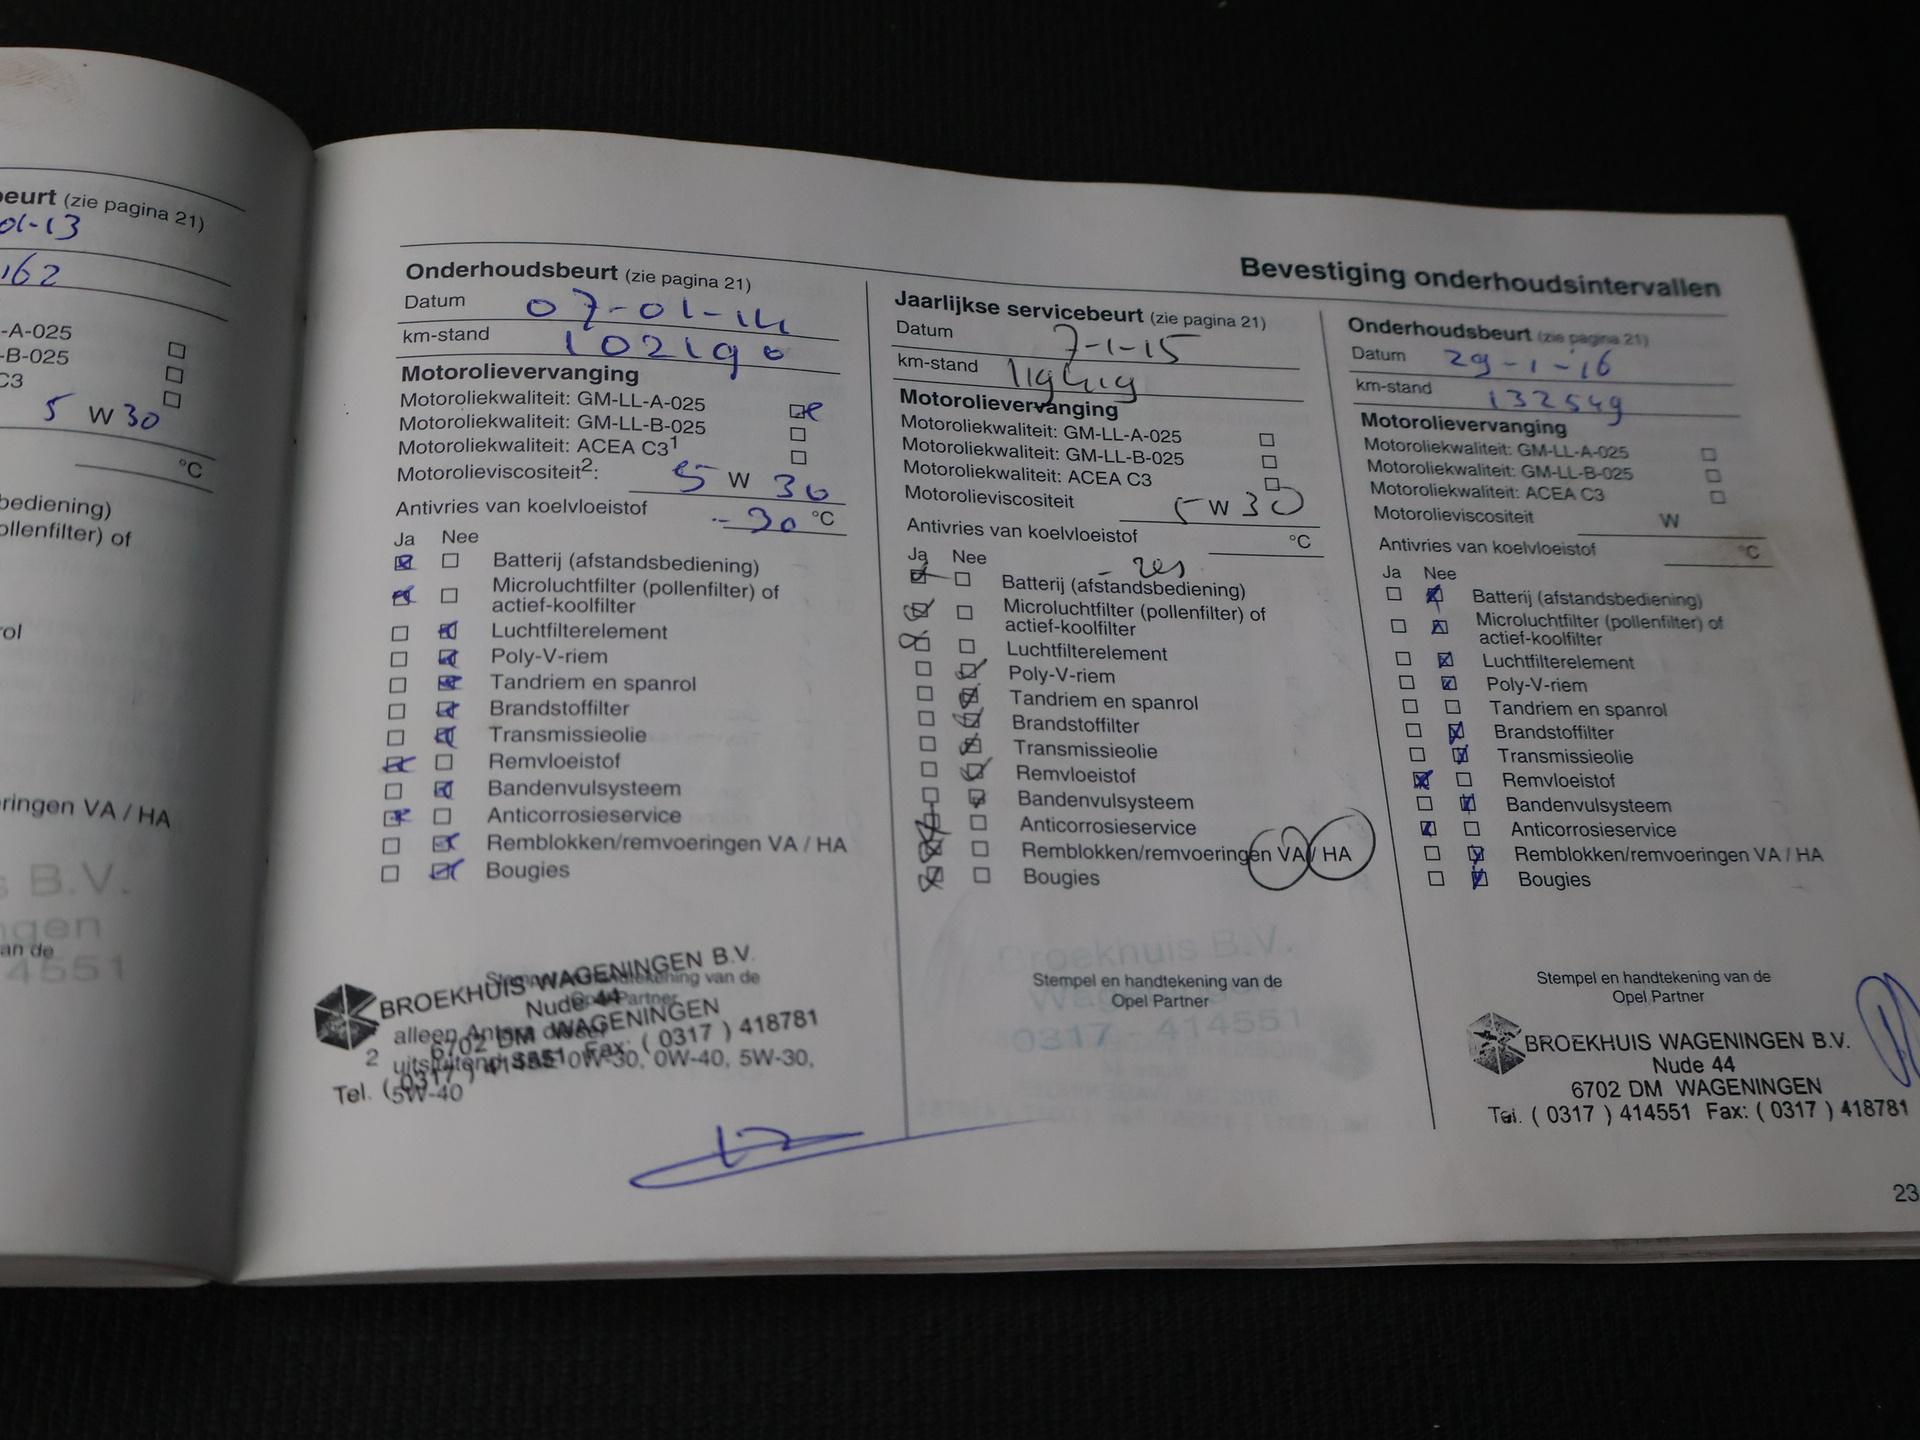 beurt (zie pagina 21)
01-13
162
-A-025
-B-025
C3
5 W 30
°C
bediening)
ollenfilter) of
rol
ringen VA / HA
s B.V.
ngen
an de
4551
Bevestiging onderhoudsintervallen
Onderhoudsbeurt (zie pagina 21)
Datum 07-01-14
km-stand 102190
Motorolievervanging
Motoroliekwaliteit: GM-LL-A-025
Motoroliekwaliteit: GM-LL-B-025
Motoroliekwaliteit: ACEA C3¹
Motorolieviscositeit²: 5 W 30
Antivries van koelvloeistof -30 °C
Ja Nee
Batterij (afstandsbediening)
Microluchtfilter (pollenfilter) of
actief-koolfilter
Luchtfilterelement
Poly-V-riem
Tandriem en spanrol
Brandstoffilter
Transmissieolie
Remvloeistof
Bandenvulsysteem
Anticorrosieservice
Remblokken/remvoeringen VA / HA
Bougies
Stempel en handtekening van de
Opel Partner
BROEKHUIS WAGENINGEN B.V.
Nude 44
6702 DM WAGENINGEN
Tel. ( 0317 ) 414551 Fax: ( 0317 ) 418781
2 uitsluitend SAE 0W-30, 0W-40, 5W-30,
5W-40
Jaarlijkse servicebeurt (zie pagina 21)
Datum 7-1-15
km-stand 119419
Motorolievervanging
Motoroliekwaliteit: GM-LL-A-025
Motoroliekwaliteit: GM-LL-B-025
Motoroliekwaliteit: ACEA C3
Motorolieviscositeit 5 W 30
Antivries van koelvloeistof °C
Ja Nee
Batterij (afstandsbediening)
Microluchtfilter (pollenfilter) of
actief-koolfilter
Luchtfilterelement
Poly-V-riem
Tandriem en spanrol
Brandstoffilter
Transmissieolie
Remvloeistof
Bandenvulsysteem
Anticorrosieservice
Remblokken/remvoeringen VA / HA
Bougies
Broekhuis B.V.
Stempel en handtekening van de
Wageningen
Opel Partner
0317 - 414551
Onderhoudsbeurt (zie pagina 21)
Datum 29-1-'16
km-stand 132549
Motorolievervanging
Motoroliekwaliteit: GM-LL-A-025
Motoroliekwaliteit: GM-LL-B-025
Motoroliekwaliteit: ACEA C3
Motorolieviscositeit W
Antivries van koelvloeistof °C
Ja Nee
Batterij (afstandsbediening)
Microluchtfilter (pollenfilter) of
actief-koolfilter
Luchtfilterelement
Poly-V-riem
Tandriem en spanrol
Brandstoffilter
Transmissieolie
Remvloeistof
Bandenvulsysteem
Anticorrosieservice
Remblokken/remvoeringen VA / HA
Bougies
Stempel en handtekening van de
Opel Partner
BROEKHUIS WAGENINGEN B.V.
Nude 44
6702 DM WAGENINGEN
Tel. ( 0317 ) 414551 Fax: ( 0317 ) 418781
23